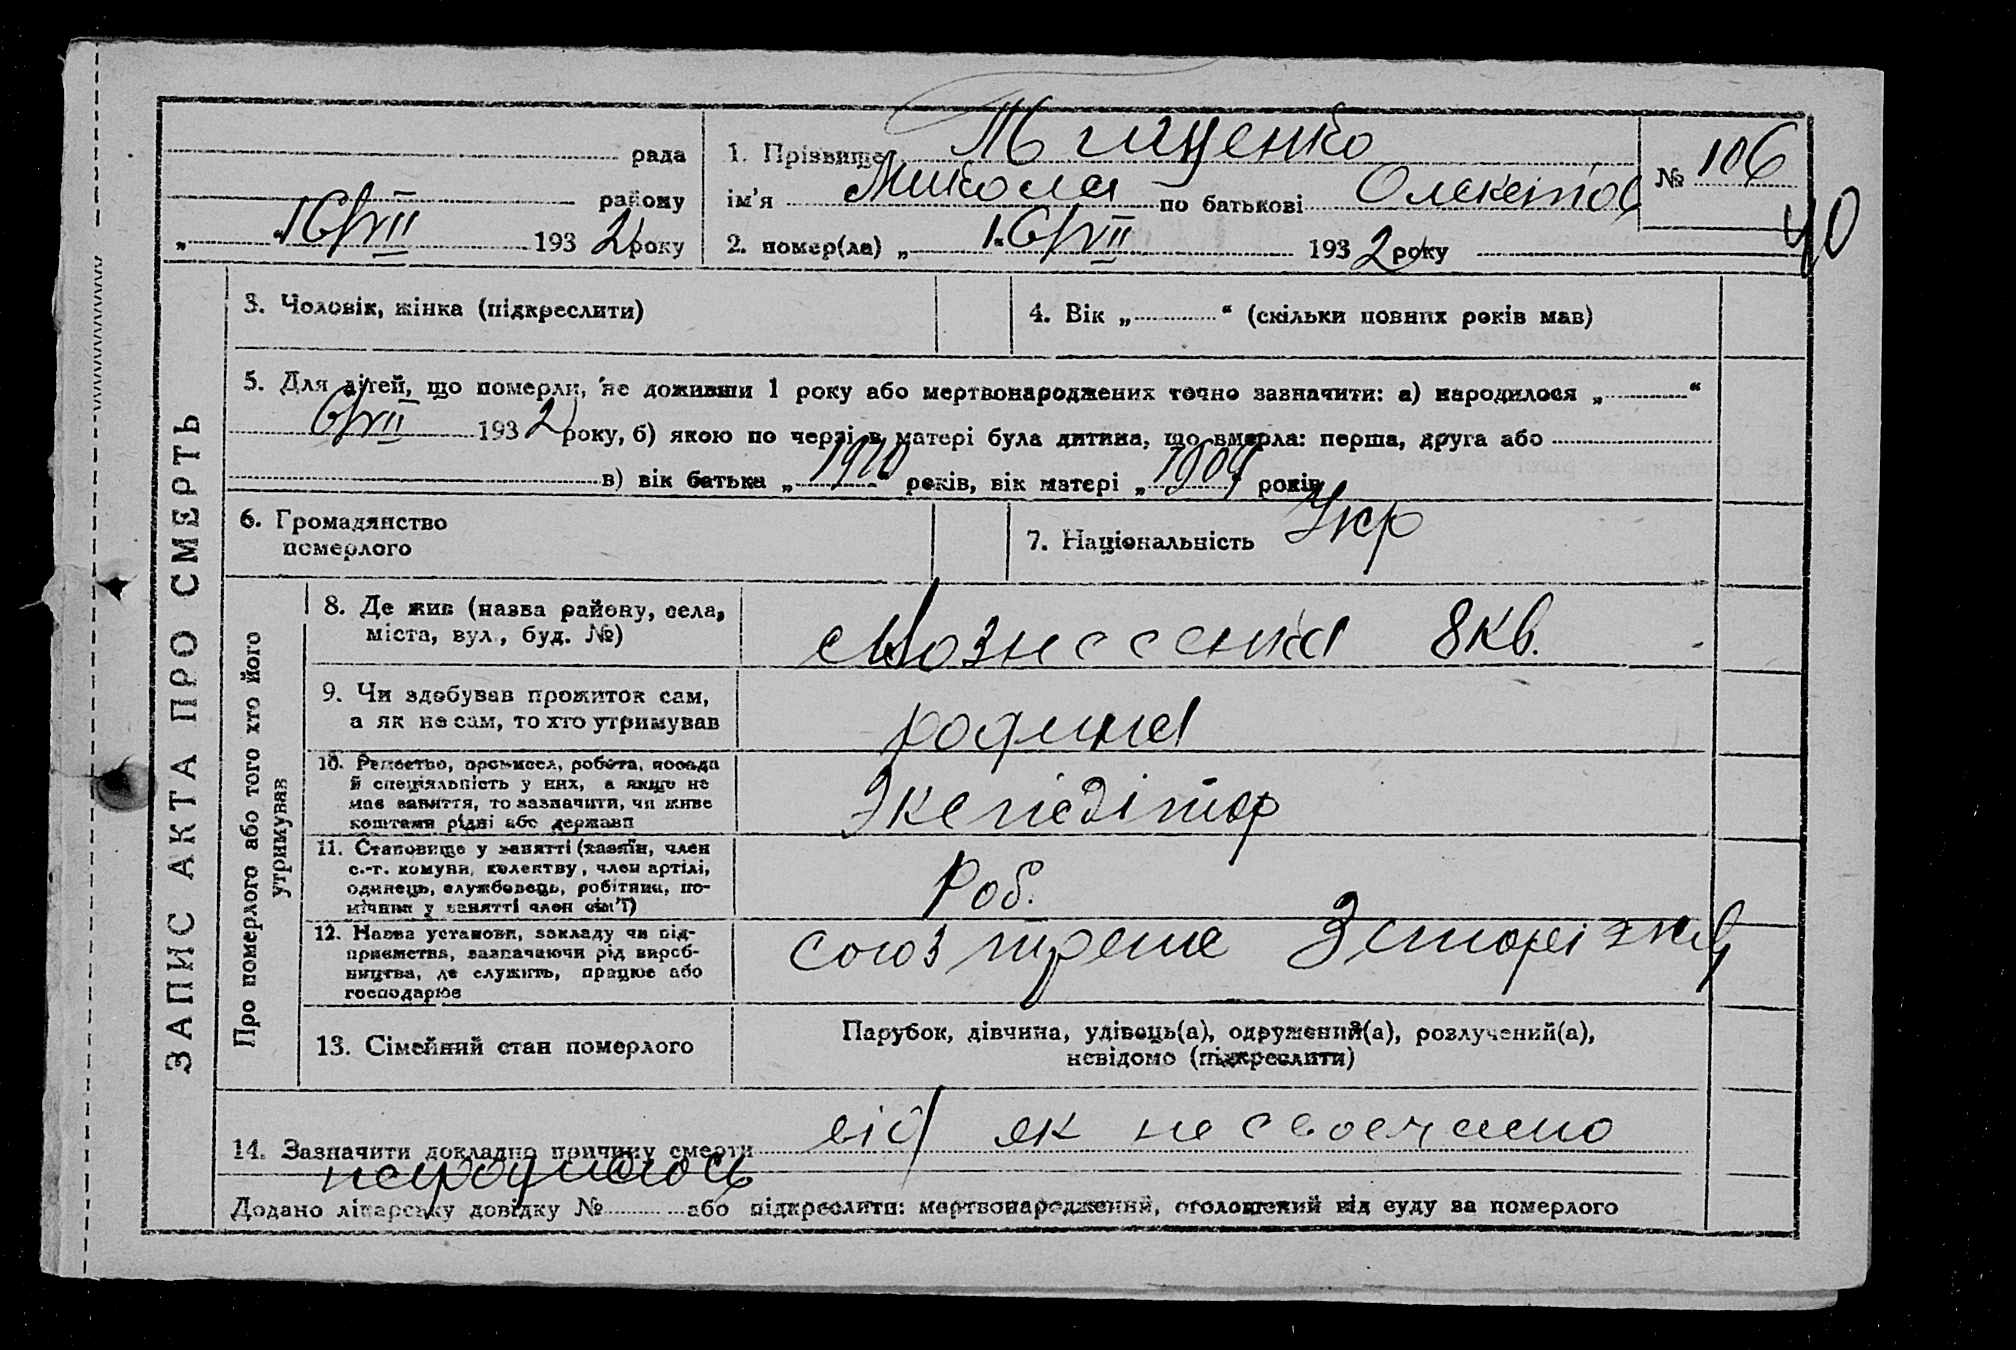 ЗАПИС АКТА ПРО СМЕРТЬ
рада
району
„ 16/VII 1932 року
1. Прізвище Тищенко
ім'я Микола по батькові
2. помер(ла) „ 16/VII 1932 року
№ 106
40
3. Чоловік, жінка (підкреслити)
4. Вік „ “ (скільки повних років мав)
5. Для дітей, що померли, не доживши 1 року або мертвонароджених точно зазначити: а) народилося „ “
6/VII 1932 року, б) якою по черзі в матері була дитина, що вмерла: перша, друга або
в) вік батька „ 1910 років, вік матері „ 1909 років
6. Громадянство
померлого
7. Національність Укр
Про померлого або того хто його
утримував
8. Де жив (назва району, села,
міста, вул., буд. №)
Вознесенка 8 кв.
9. Чи здобував прожиток сам,
а як не сам, то хто утримував
родина
10. Ремество, промисел, робота, посада
й спеціяльність у них, а якщо не
має заняття, то зазначити, чи живе
коштами рідні або держави
Экспедітор
11. Становище у занятті (хазяїн, член
с.-г. комуни, колективу, член артілі,
одинець, службовець, робітник, по-
мічник у занятті член сім'ї)
Роб.
12. Назва установи, закладу чи під-
приємства, зазначаючи рід вироб-
ництва, де служить, працює або
господарює
союз
13. Сімейний стан померлого
Парубок, дівчина, удівець(а), одружений(а), розлучений(а),
невідомо (підкреслити)
14. Зазначити докладно причину смерти від як несвоечасно
народилось
Додано лікарську довідку № або підкреслити: мертвонароджений, оголошений від суду за померлого